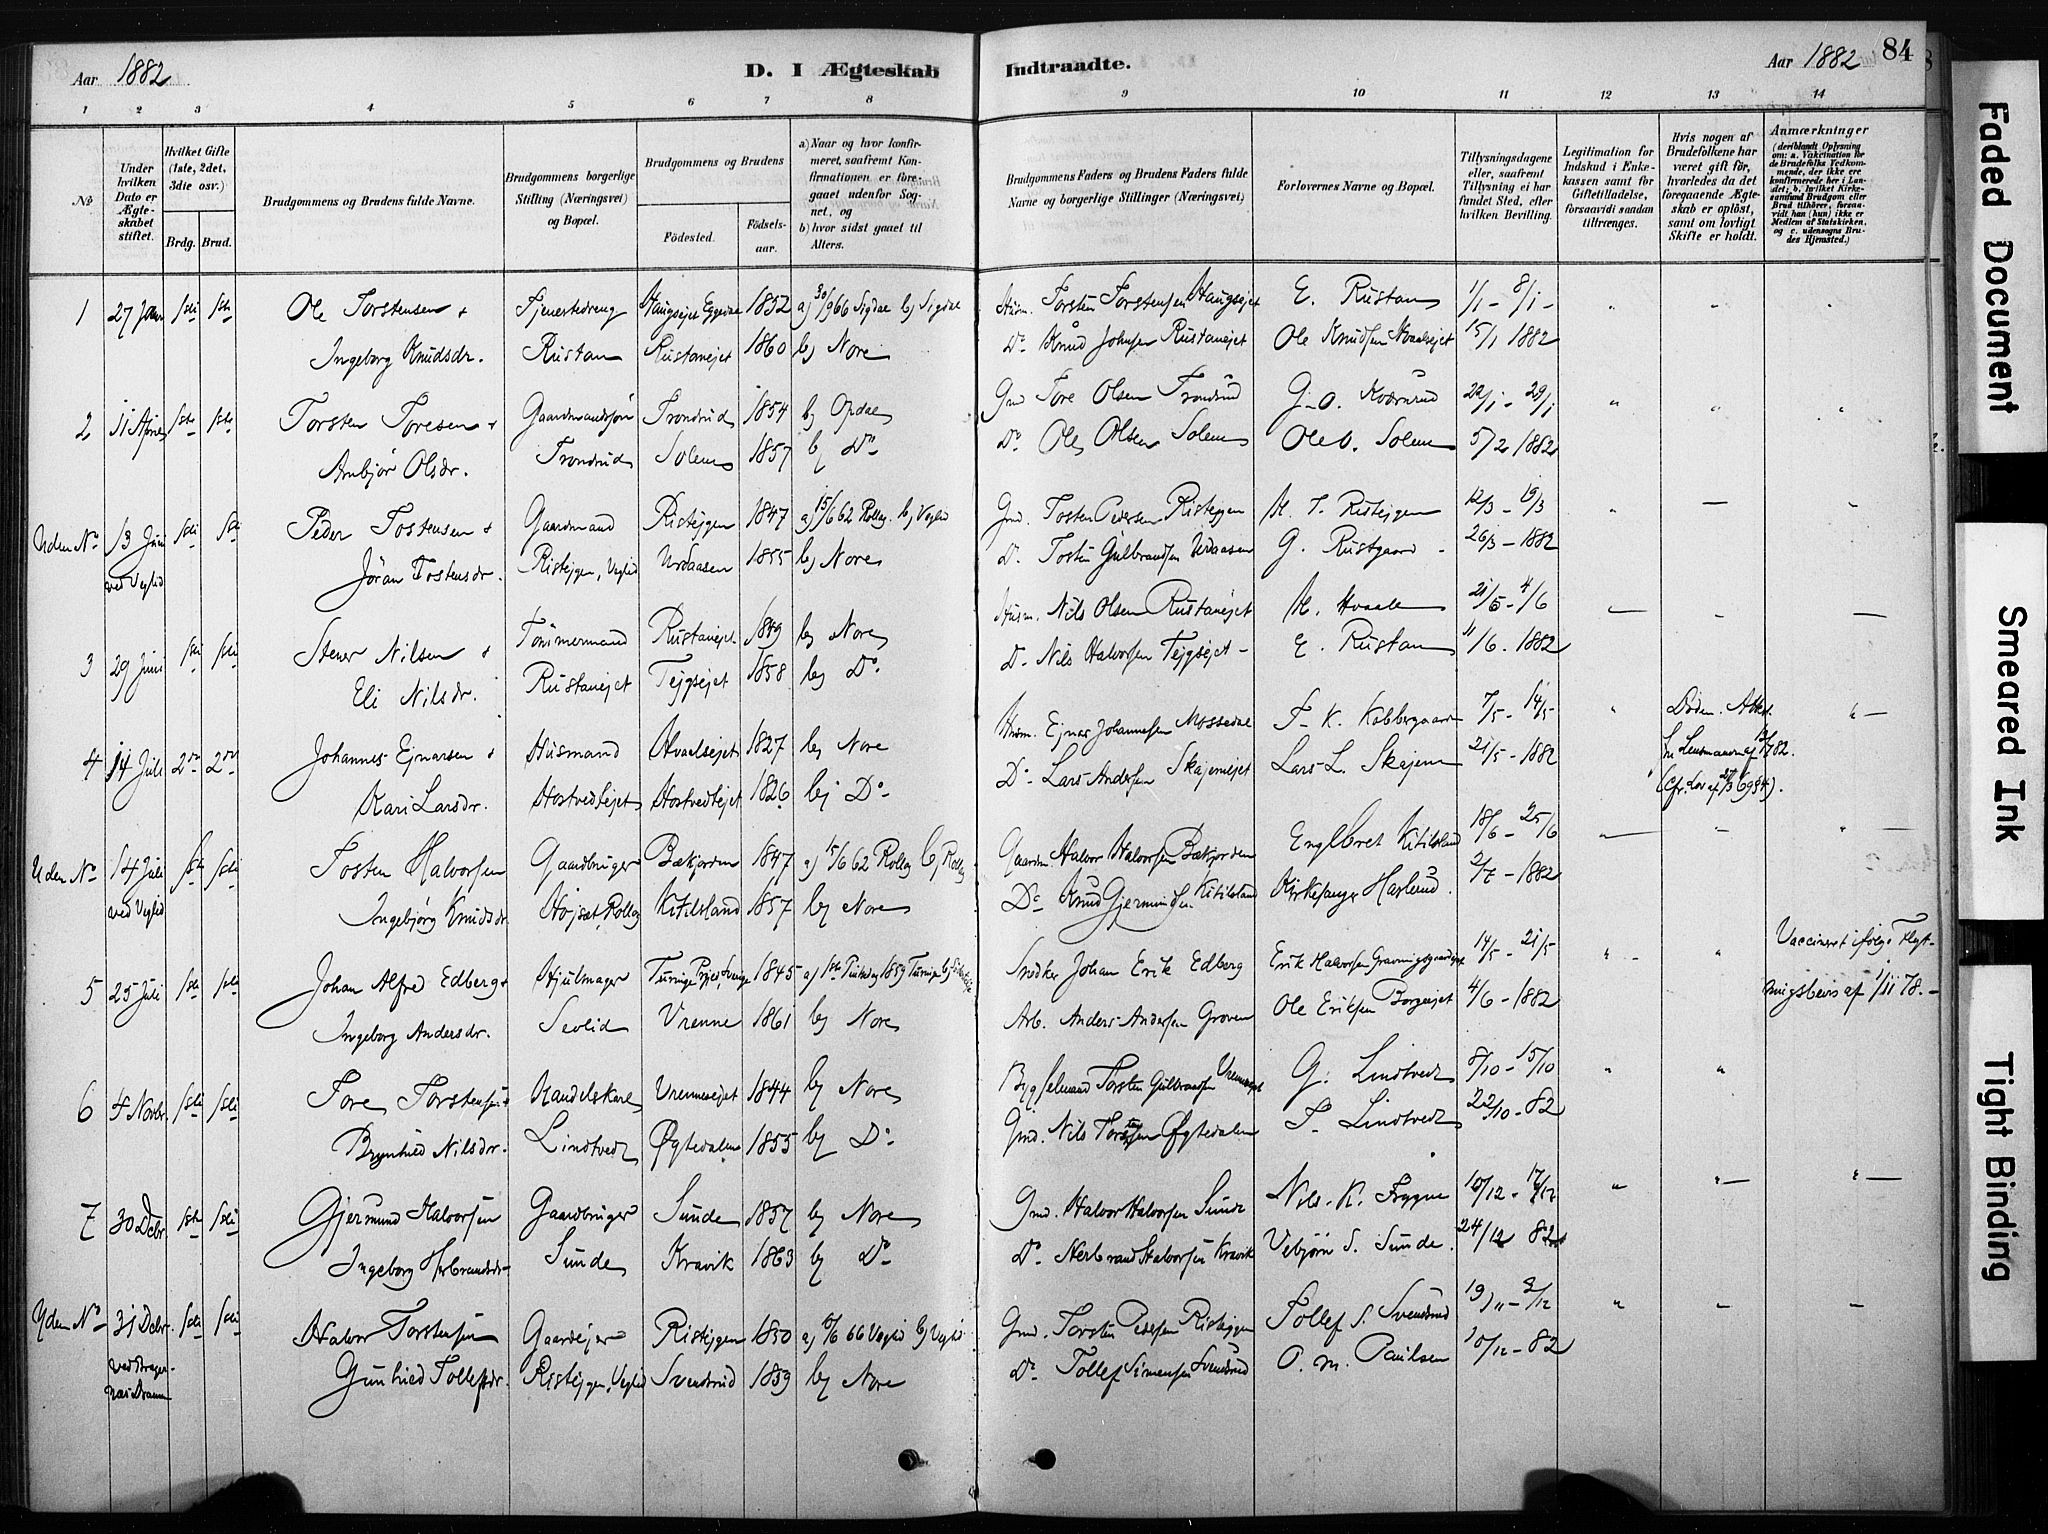 Aar 1882
D. I Ægteskab
Indtraadte.
Aar 1882
84
1 2 3 4 5 6 7 8 9 10 11 12 13 14
No
Under hvilken Dato er Ægteskabet stiftet.
Hvilket Gifte (1ste, 2det, 3die osv.)
Brdg. Brud.
Brudgommens og Brudens fulde Navne.
Brudgommens borgerlige Stilling (Næringsvei) og Bopæl.
Brudgommens og Brudens
Fødested.
Fødsels-aar.
a) Naar og hvor konfirmeret, saafremt Konfirmationen er foregaaet udenfor Sognet, og
b) hvor sidst gaaet til Alters.
Brudgommens Faders og Brudens Faders fulde Navne og borgerlige Stillinger (Næringsvei)
Forlovernes Navne og Bopæl.
Tillysningsdagene eller, saafremt Tillysning ei har fundet Sted, efter hvilken Bevilling.
Legitimation for Indskud i Enkekassen samt for Giftetilladelse, forsaavidt saadan tiltrænges.
Hvis nogen af Brudefolkene har været gift før, hvorledes da det foregaaende Ægteskab er opløst, samt om lovligt Skifte er holdt.
Anmærkninger (deriblandt Oplysning om: a. Vakcination for de Brudefolks Vedkommende, der ikke ere konfirmerede her i Landet; b. hvilket Kirkesamfund Brudgom eller Brud tilhører, forsaavidt han (hun) ikke er Medlem af Statskirken, og c. udensogns Brudes Hjemsted.)
1 27 Jan 1ste 1ste Ole Torstensen + Tjenestedreng Haugsejet Eggedal 1852 a) 30/9 66 Sigdal b) Sigdal Husm. Torsten Torstensen Haugsejet E. Rustan 1/1 - 8/1 -
Ingeborg Knudsdr. Rustan Rustanejet 1860 b) Nore Do Knud Johnsen Rustanejet Ole Knudsen Hvaalsejet 15/1 1882
2 11 April 1ste 1ste Torsten Toresen + Gaardmandssøn Trondrud 1854 b) Opdal Gmd Tore Olsen Trondrud G. O. Kværnrud 22/1 - 29/1
Anbjør Olsdr. Trondrud Solem 1857 b) Do Do Ole Olsen Solem Ole O. Solem 5/2 1882
Uden No 13 Juni 1ste 1ste Peder Tostensen + Gaardmand Ristejgen 1847 a) 15/6 62 Rollag. b) Veglid Gmd. Tosten Pedersen Ristejgen H. T. Ristejgen 12/3 - 19/3
ved Veglid Jøran Tostensdr. Ristejgen, Veglid Urdaasen 1855 b) Nore D. Tosten Gulbrandsen Urdaasen G. Rustgaard - 26/3 - 1882
3 29 Juni 1ste 1ste Stener Nilsen + Tømmermand Rustanejet 1849 b) Nore Husm. Nils Olsen Rustanejet H. Hvaale 21/5 - 4/6
Eli Nilsdr. Rustanejet Tejgsejet 1858 b) Do D. Nils Halvorsen Tejgsejet - E. Rustan 11/6 - 1882
4 14 Juli 2den 2den Johannes Ejnarsen + Husmand Hvaalsejet 1827 b) Nore Husm. Ejnar Johannesen Mossedal T. K. Kobbergaard 7/5 - 14/5 Døden. Attest
Kari Larsdr. Hostvedtejet Hostvedtejet 1826 b) Do D. Lars Andersen Skajemejet Lars L. Skajem 21/5 - 1882 fra Lensmanden af 82.
Uden No 14 Juli 1ste 1ste Tosten Halvorsen Gaardbruger Bækjorden 1847 a) 15/6 62 Rollag b) Rollag Gaardm. Halvor Halvorsen Bækjorden Englbret Kitilsland 18/6 - 25/6
ved Veglid Ingebjørg Knudsdr. Højset, Rollag Kitilsland 1857 b) Nore Do Knud Gjermundsen Kitilsland Kirkesanger Haslerud 2/7 - 1882
5 25 Juli 1ste 1ste Johan Alfred Edberg + Hjulmager Turinge Sverige 1845 a) 1ste Pintsdag 1859 Turinge Snedker Johan Erik Edberg Erik Halvorsen 14/5 - 21/5 Vaccineret ifølge Flyt-
Ingeborg Andersdr. Sevlid Vrenne 1861 b) Nore Arb. Anders Andersen Groven Ole Eriksen Borgejet 4/6 - 1882 ningsbevis af 1/11 78. -
6 4 Novbr 1ste 1ste Tore Torstensen + Handelskarl Vrennesejet 1844 b) Nore Bygselmand Torsten Gulbrandsen Vrennesejet G. Lindtvedt 8/10 - 15/10
Brynhild Nilsdr. Lindtvedt Øygtedalen 1855 b) Do Gmd. Nils Øygtedalen T. Lindtvedt 22/10 - 82
7 30 Debr 1ste 1ste Gjermund Halvorsen Gaardbruger Sunde 1857 b) Nore Gmd. Halvor Halvorsen Sunde Nils K. Frygne 10/12 - 17/12
Ingeborg Herbrandsdr Sunde Kravik 1863 b) Do Do Herbrand Halvorsen Kravik Vebjørn S. Sunde. 24/12 82
Uden No 31 Debr 1ste 1ste Halvor Torstensen Gaardejer Ristejgen 1850 a) 66 Veglid b) Veglid Gmd. Torsten Pedersen Ristejgen Tollef S. Svendsrud 19/11 - 3/12
ved Bragernæs Dramn Gunhild Tollefsdr. Ristejgen, Veglid Svendsrud 1859 b) Nore Do Tollef Simensen Svendsrud O. M. Paulsen 10/12 - 82
Faded Document
Smeared Ink
Tight Binding